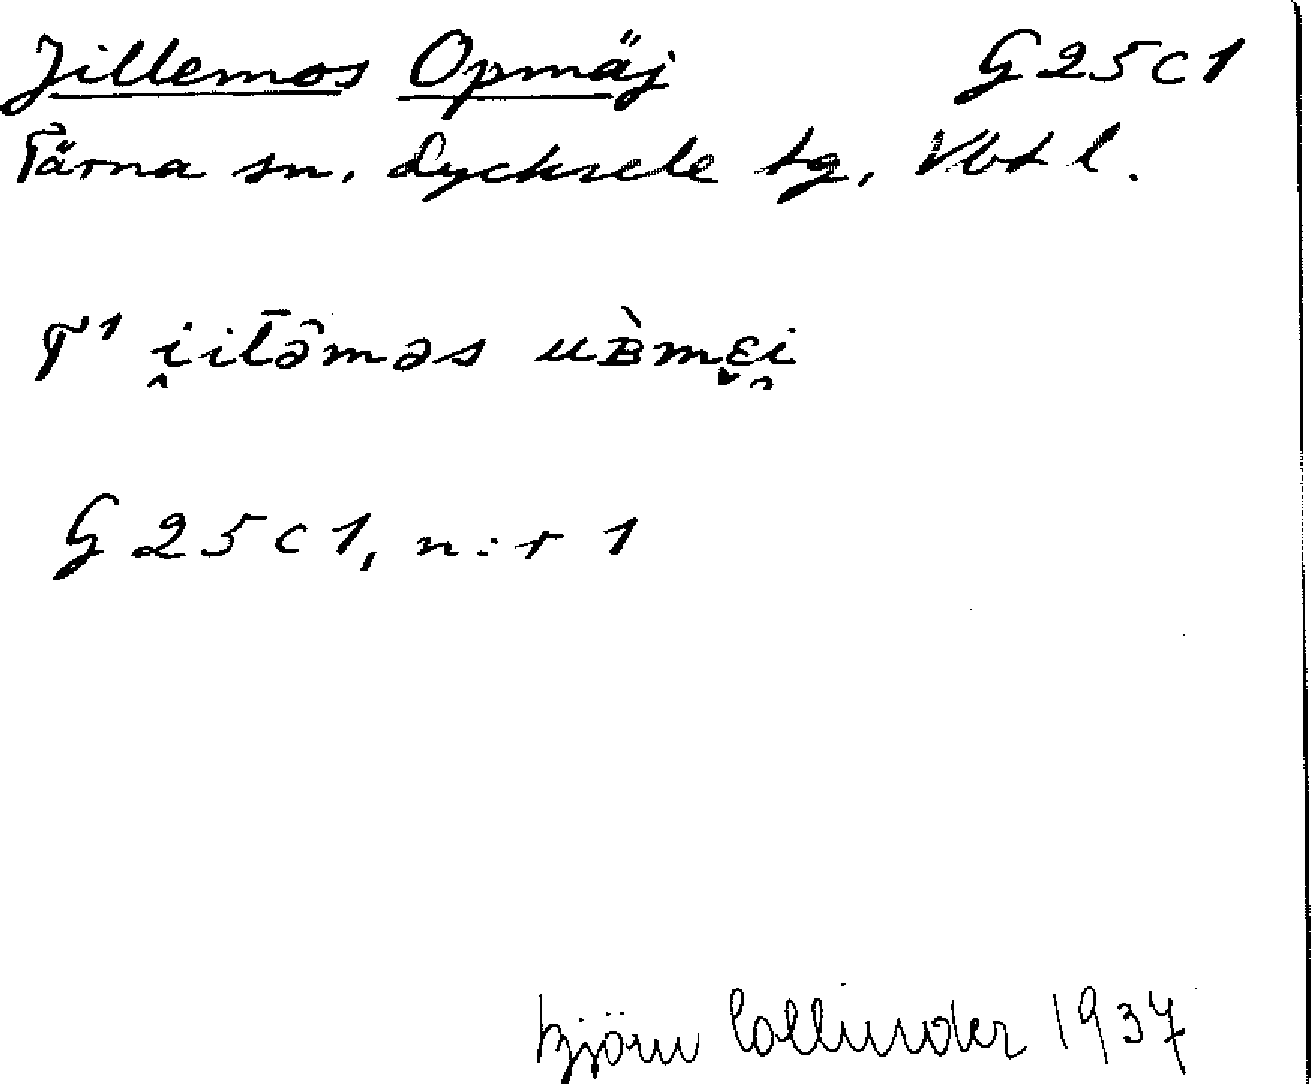 Jillemos Opmäj G25c1
Tärna sn. Lycksele tg. Vbtl.
T¹ i̭ilə̄̂məs uʙ̀mɛ̬i̯
G25c1, n:r 1
Björn Collinder 1937